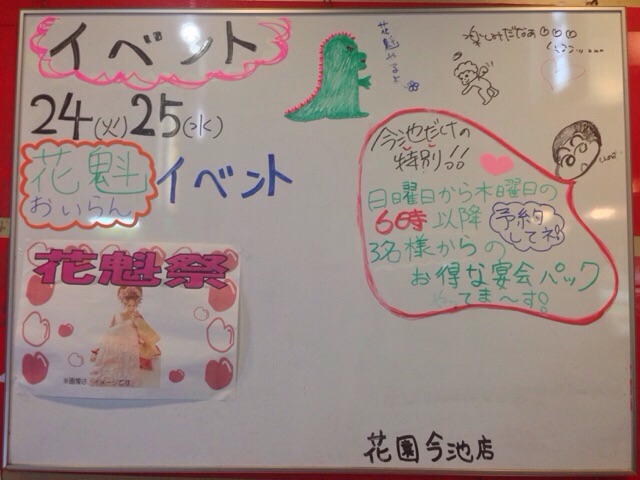 イベント
24(火)25(水)
花魁
おいらん
イベント
花魁祭
※画像は イメージです
花魁やるよ
楽しみだなぁ
今池だけの
特別!!
日曜日から木曜日の
6時以降
予約
してネ!
3名様からの
お得な宴会パック
やてま〜す!
花園今池店